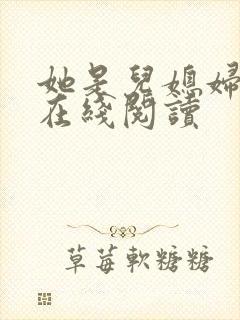 她是兒媳婦
在綫閱讀
草莓軟糖糖